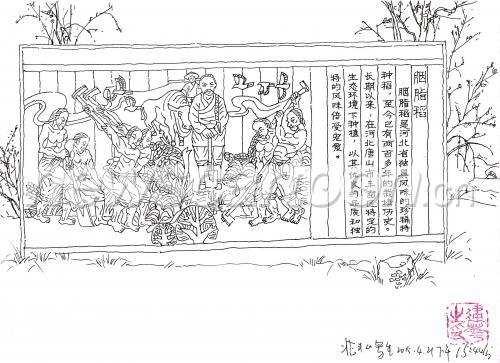 胭脂稻
胭脂稻是河北省独具风味的珍稀特
种稻，至今已有两百多年的栽培历史。
长期以来，在河北唐山市丰南区特定的
生态环境下种植，以其优良的品质和独
特的风味倍受宠爱。
写生 2015.4.21